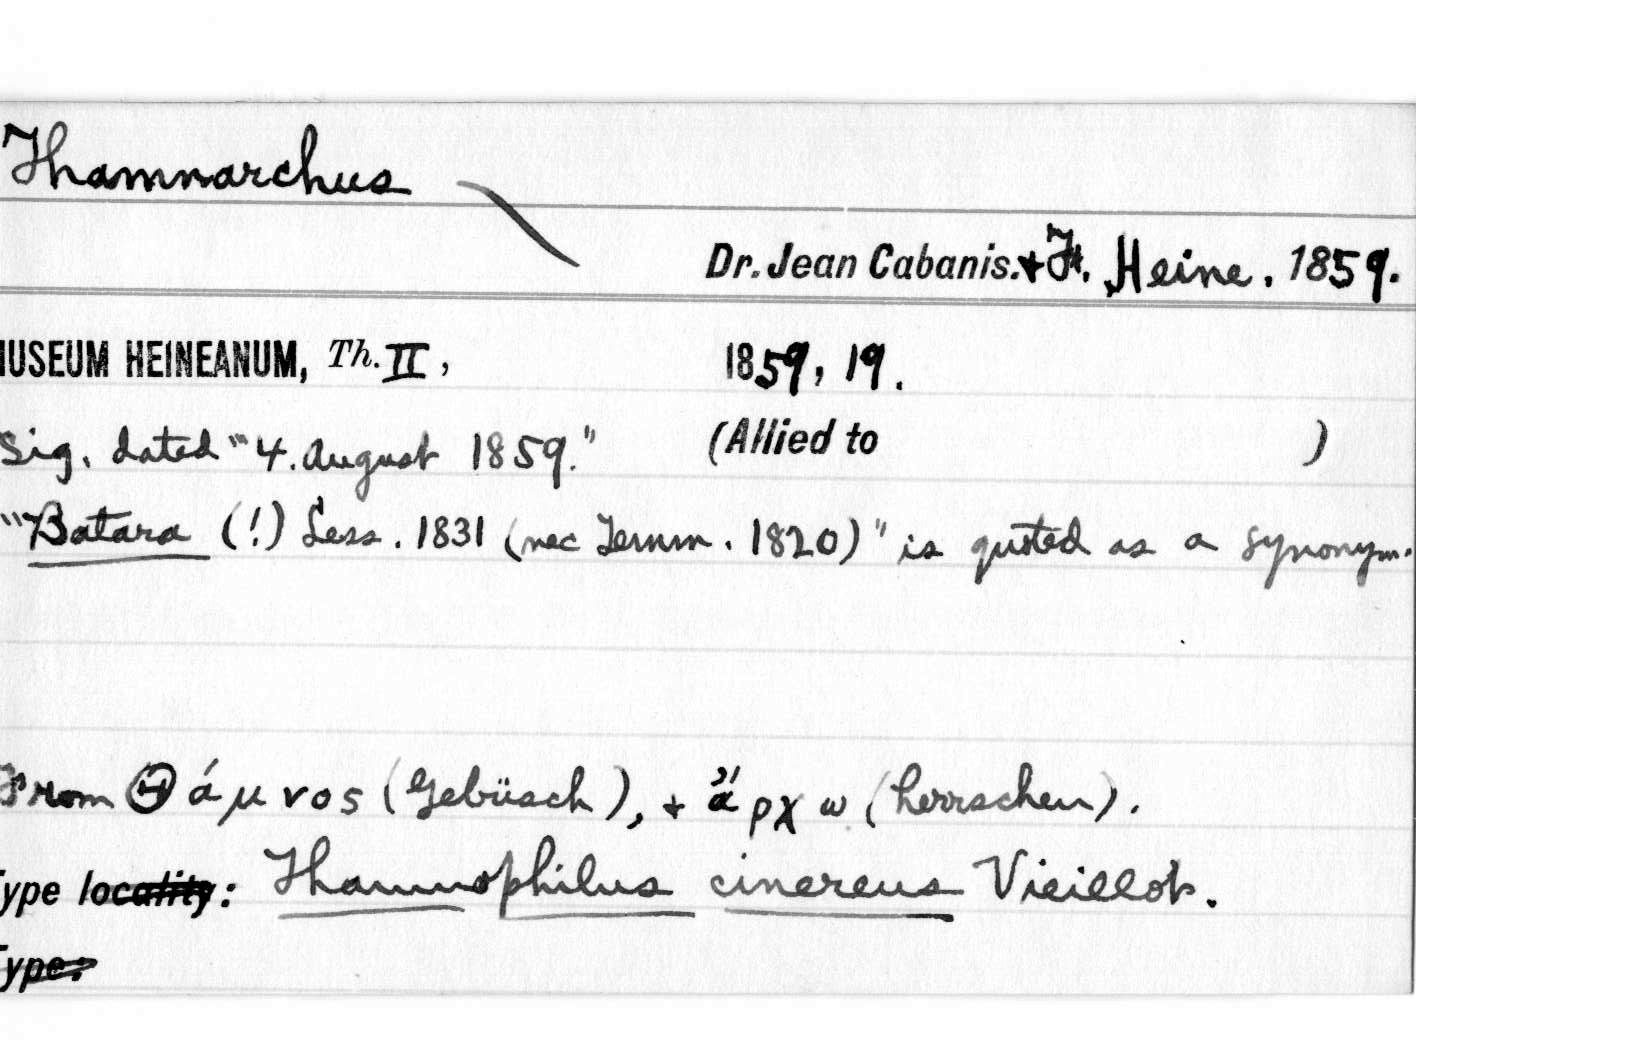 Thamnarchus
Dr. Jean Cabanis. + F. Heine. 1859.
MUSEUM HEINEANUM, Th. II, 1859, 19.
Sig. dated "4. August 1859." (Allied to )
"Batara (!) Less. 1831 (nec Temm. 1820)" is quoted as a synonym.
From Θάμνος (Gebüsch), + ἄρχω (herrschen).
Type locality: Thamnophilus cinereus Vieillot.
Type: